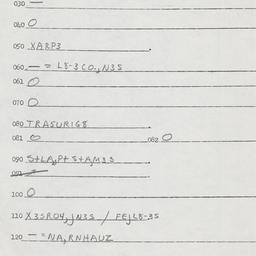 030 —
040 O
050 XARP3
060 — = L8-3CO,,N3S
061 O
070 O
080 TRASURIG8
081 O 082 O
090 S+LA,,P+ S+A,M3S
091
100 O
110 X3SRO4,,N3S / FE,L8-3S
120 — = NA,RNHAUZ